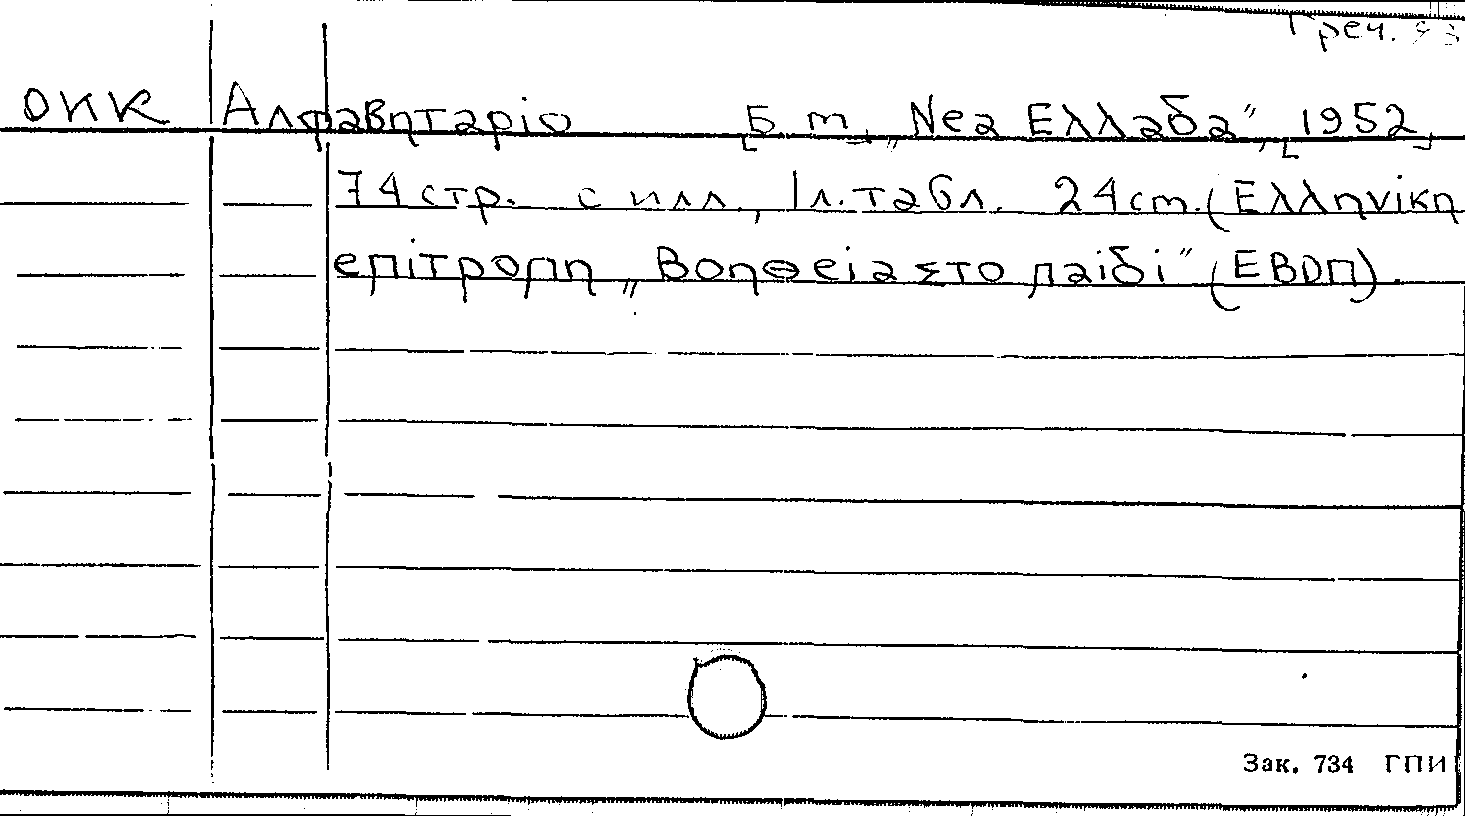 Греч. яз
ОИК Αλφαβηταριο [Б. м.], „Νεα Ελλαδα”, [1952],
74 стр. с илл., 1 л. табл. 24 cm. (Ελληνικη
επιτροπη „Βοηθεια στο παιδι” (ΕΒΟΠ).
Зак. 734 ГПИ